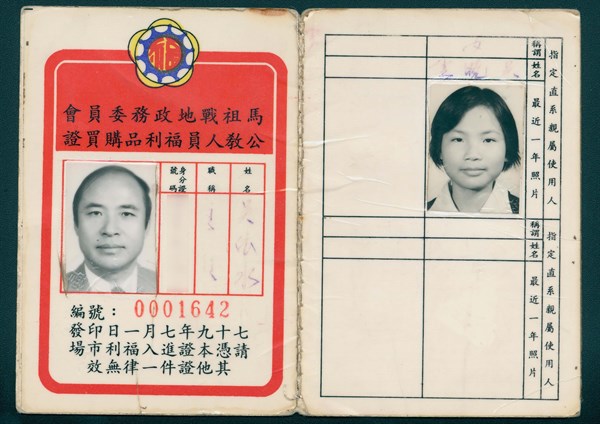 馬祖戰地政務委員會
公教人員福利品購買證
姓名
職稱
身分證
號碼
編號：0001642
七十九年七月一日印發
請憑本證進入福利市場
其他證件一律無效
指定直系親屬使用人
稱謂
姓名
最近一年照片
指定直系親屬使用人
稱謂
姓名
最近一年照片